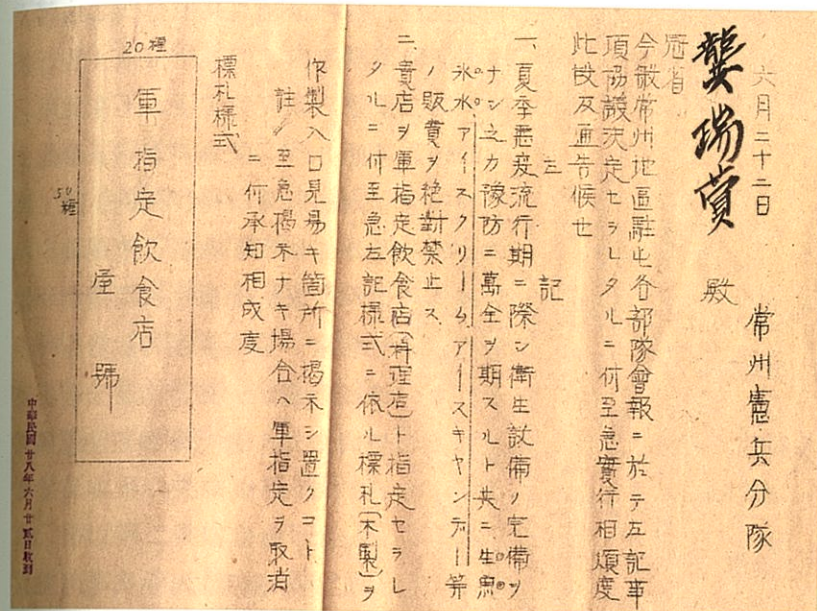 六月二十二日
常州憲兵分隊
龔瑞賞 殿
冠省
今般常州地區駐屯各部隊會報ニ於テ左記事
項協議決定セラレタルニ付至急實行相煩度
此段及通告候也
左記
一、夏季悪疫流行期ニ際シ衛生設備ノ完備ヲ
ナシ之カ豫防ニ萬全ヲ期スルト共ニ生魚
氷水アイスクリームアイスキヤンデー等
ノ販賣ヲ絶對禁止ス
二、貴店ヲ軍指定飲食店(料理店)ト指定セラレ
タルニ付至急左記様式ニ依ル標札(木製)ヲ
作製入口見場キ箇所ニ揭示シ置クコト
註/至急揭示ナキ場合ハ軍指定ヲ取消
ニ付承知相成度
標札様式
20糎
50糎
軍指定飲食店
屋號
中華民國廿八年六月廿貳日收到